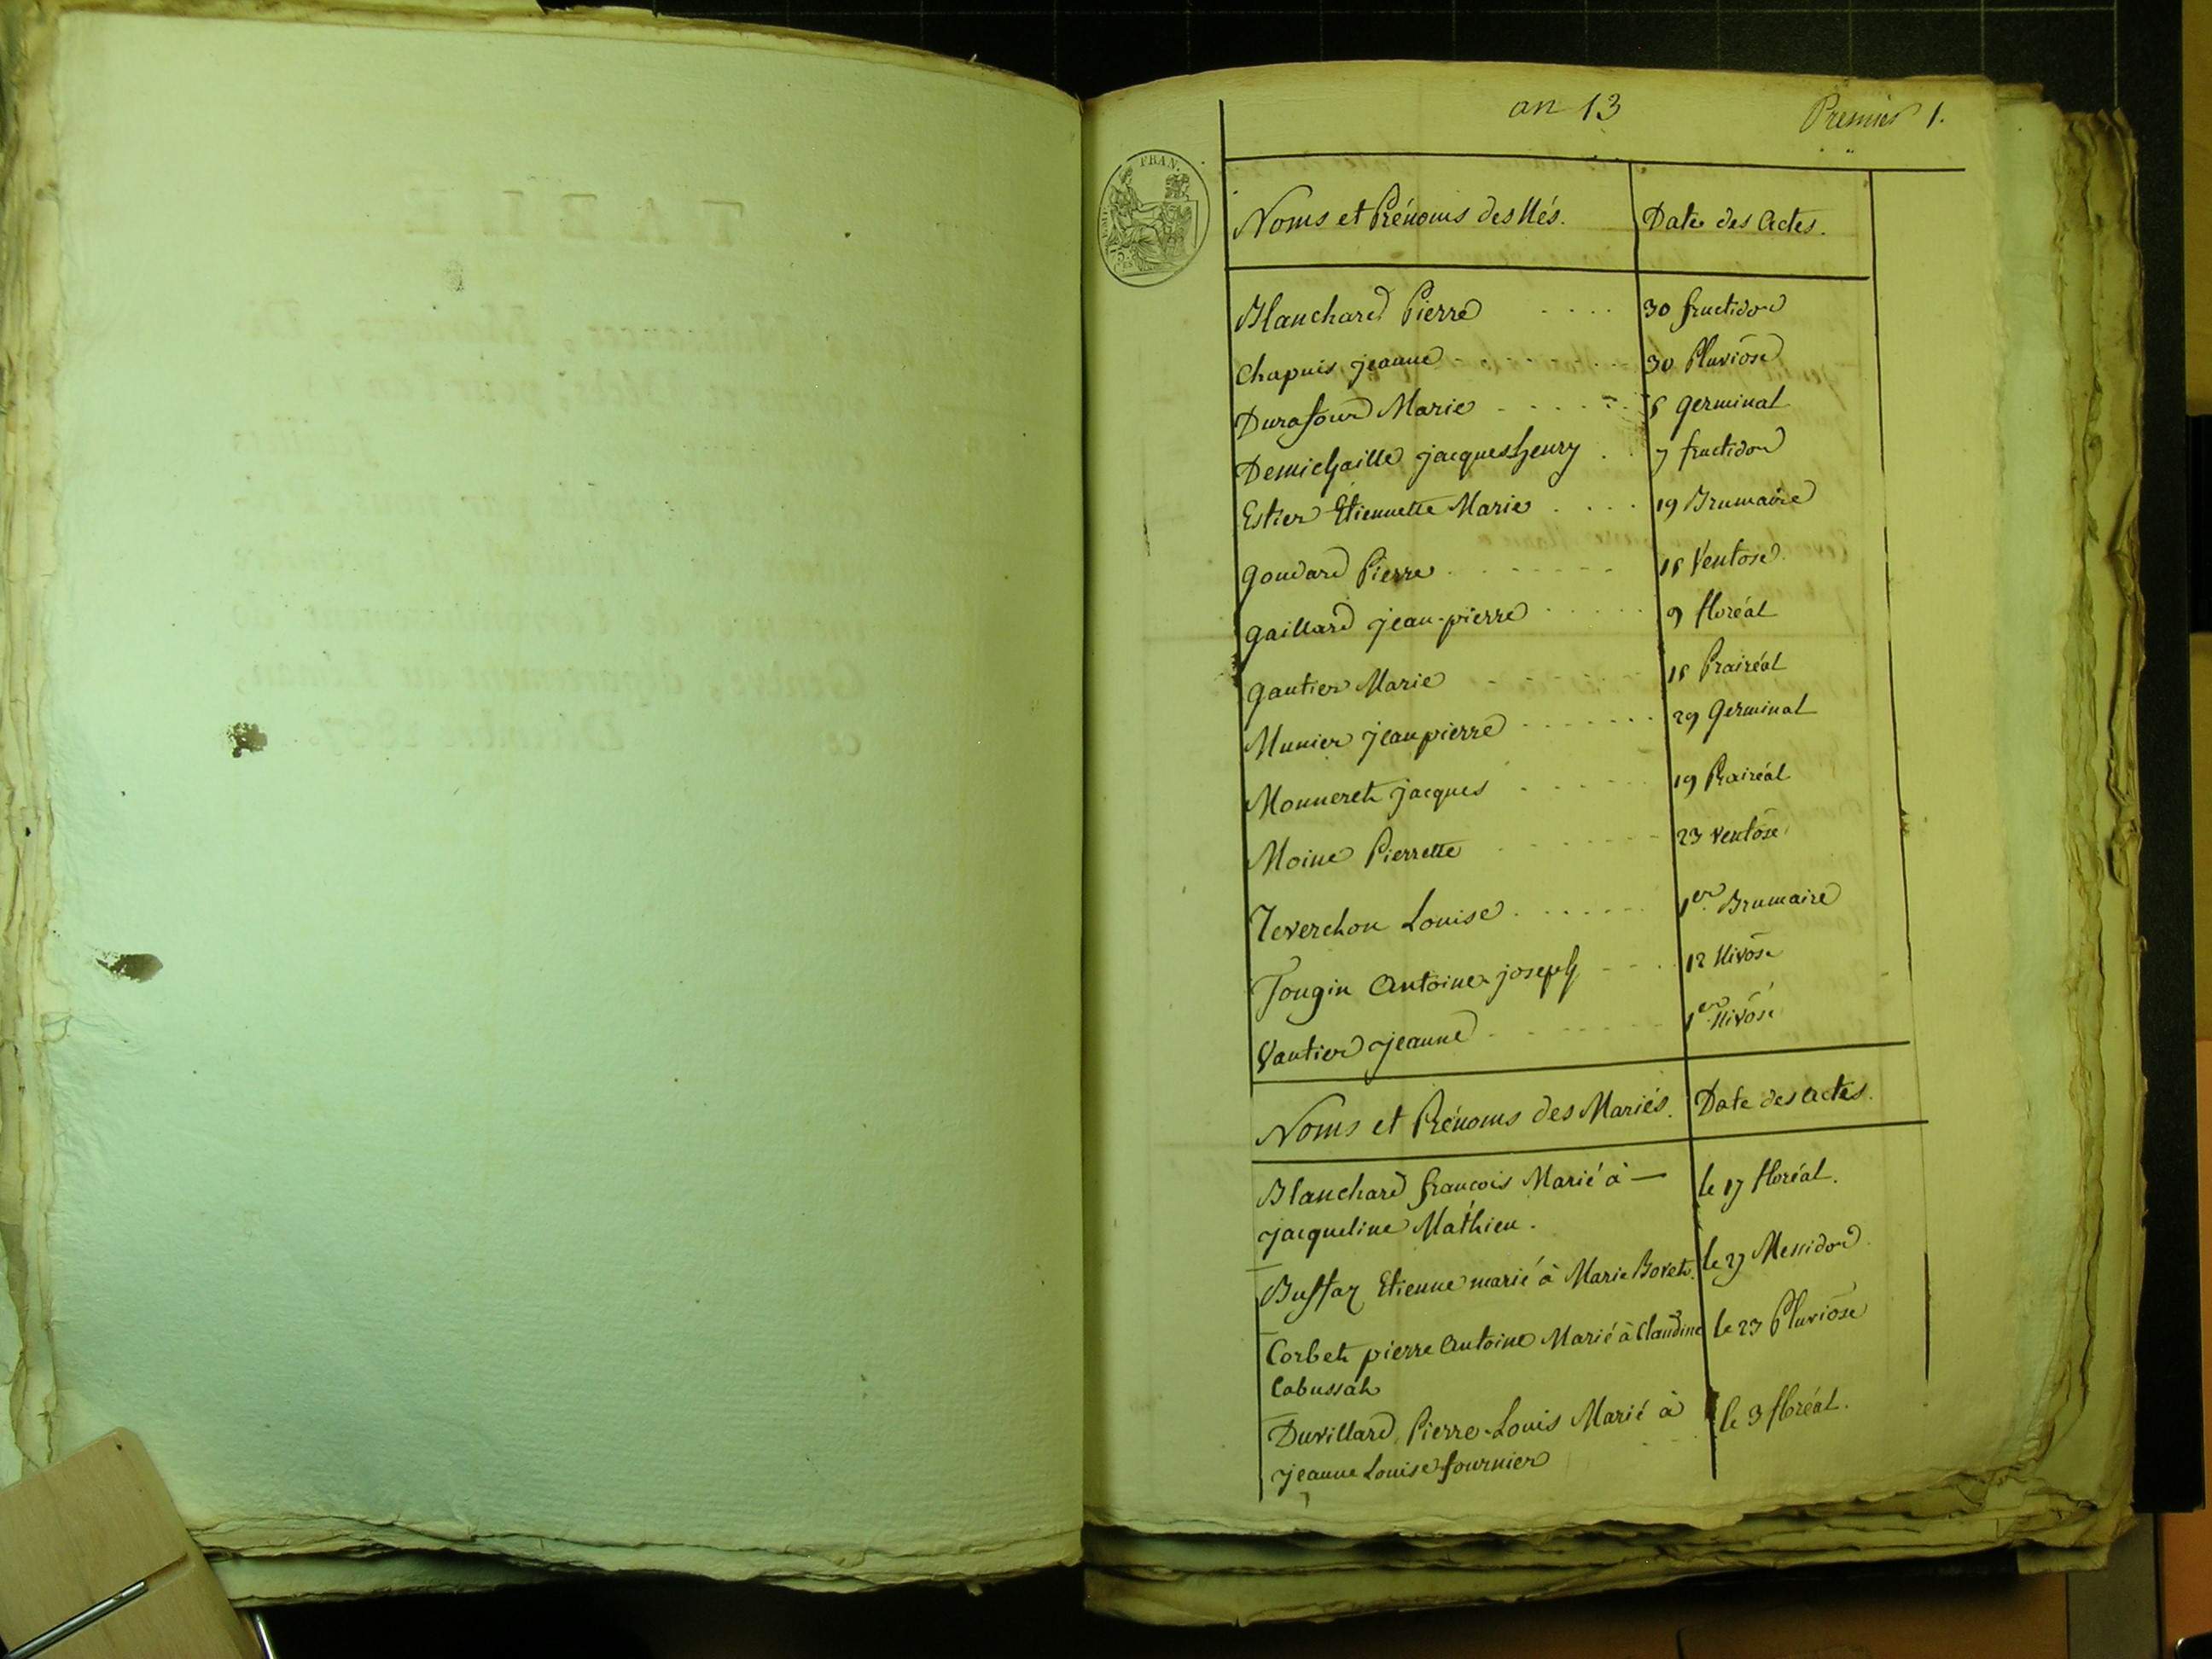 an 13
Premier 1.
FRAN.
Noms et Prénoms des Nés. Date des Actes.
Blanchard Pierre .... 30 fructidor
Chapuis jeanne 30 Pluviôse
Durafour Marie germinal
Demichaille jacques henry 7 fructidor
Estier Etiennette Marie .... 19 Brumaire
goudard Pierre Ventose.
gaillard jean-pierre 9 floréal
gautier Marie Prairéal
Munier jean pierre 29 germinal
Monneret jacques 19 Prairéal
Moine Pierrette 23 ventôse
Reverchon Louise 1er Brumaire
Tougin Antoine joseph 12 Nivôse
Vautier jeanne 1er Nivôse
Noms et Prénoms des Mariés. Date des actes.
Blanchard françois Marié à — le 17 floréal.
jacqueline Mathieu.
Etienne marié à Marie Bovet. le 27 Messidor
Corbet pierre Antoine Marié à Claudine le 23 Pluviôse
Cabussat
Duvillard Pierre-Louis Marié à le 3 floréal.
jeanne Louise fournier